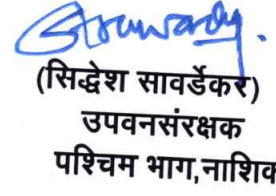 (सिद्धेश सावर्डेकर)
उपवनसंरक्षक
पश्चिम भाग,नाशिक